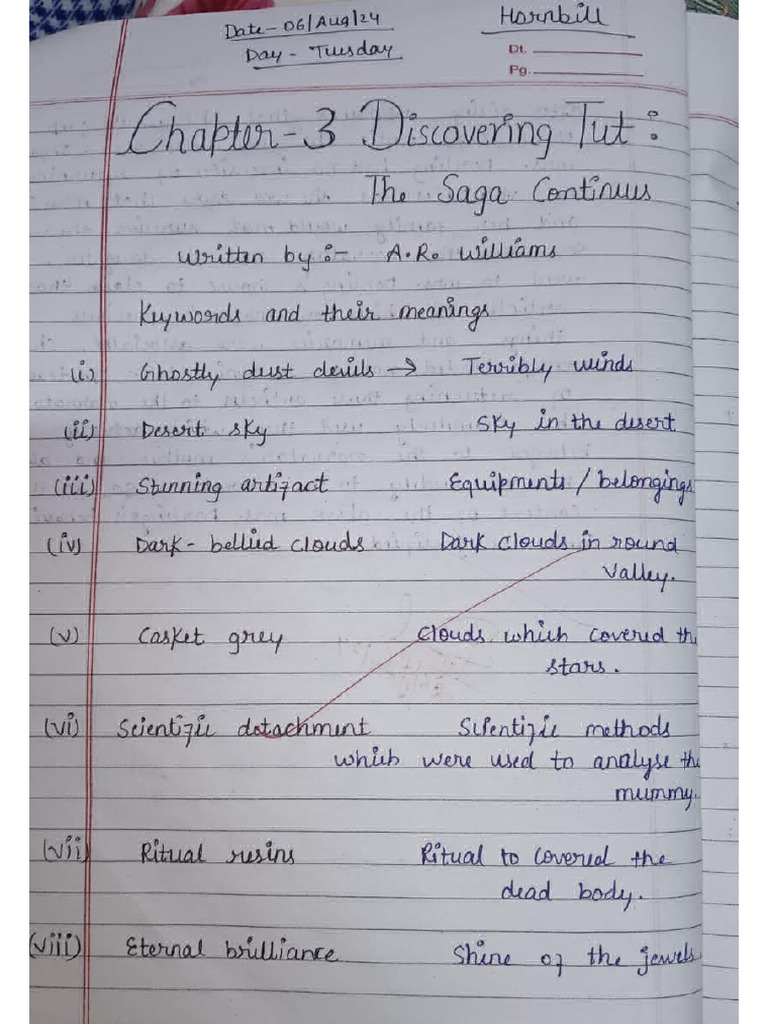 Date- 06/Aug/24
Day - Tuesday
Hornbill
Dt.
Pg.
Chapter-3 Discovering Tut :
The Saga Continues
Written by :- A.R. Williams
Keywords and their meanings
(i) Ghostly dust devils → Terribly winds
(ii) Desert sky Sky in the desert
(iii) Stunning artifact Equipments / belongings
(iv) Dark - bellied clouds Dark clouds in round
valley.
(v) Casket grey Clouds which covered the
stars.
(vi) Scientific detachment Scientific methods
which were used to analyse the
mummy.
(vii) Ritual resins Ritual to covered the
dead body.
(viii) Eternal brilliance Shine of the jewels